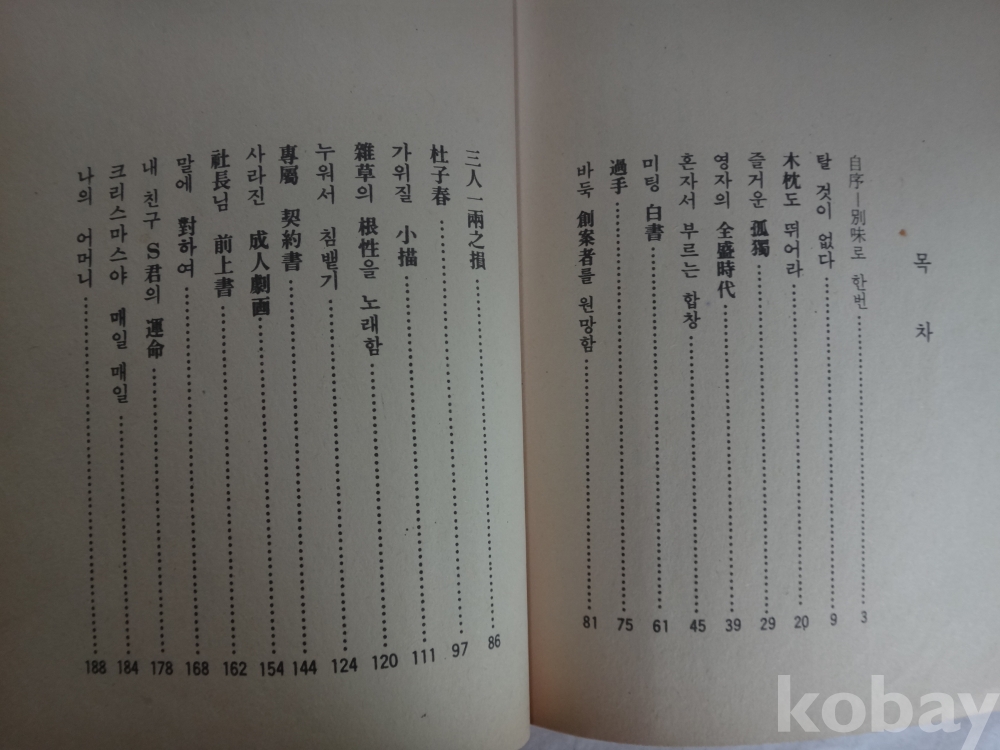 목 차
自序—別味로 한번 3
탈 것이 없다 9
木枕도 뛰어라 20
즐거운 孤獨 29
영자의 全盛時代 39
혼자서 부르는 합창 45
미팅 白書 61
過手 75
바둑 創案者를 원망함 81
三人一兩之損 86
杜子春 97
가위질 小描 111
雜草의 根性을 노래함 120
누워서 침뱉기 124
專屬 契約書 144
사라진 成人劇画 154
社長님 前上書 162
말에 對하여 168
내 친구 S君의 運命 178
크리스마스야 매일 매일 184
나의 어머니 188
kobay